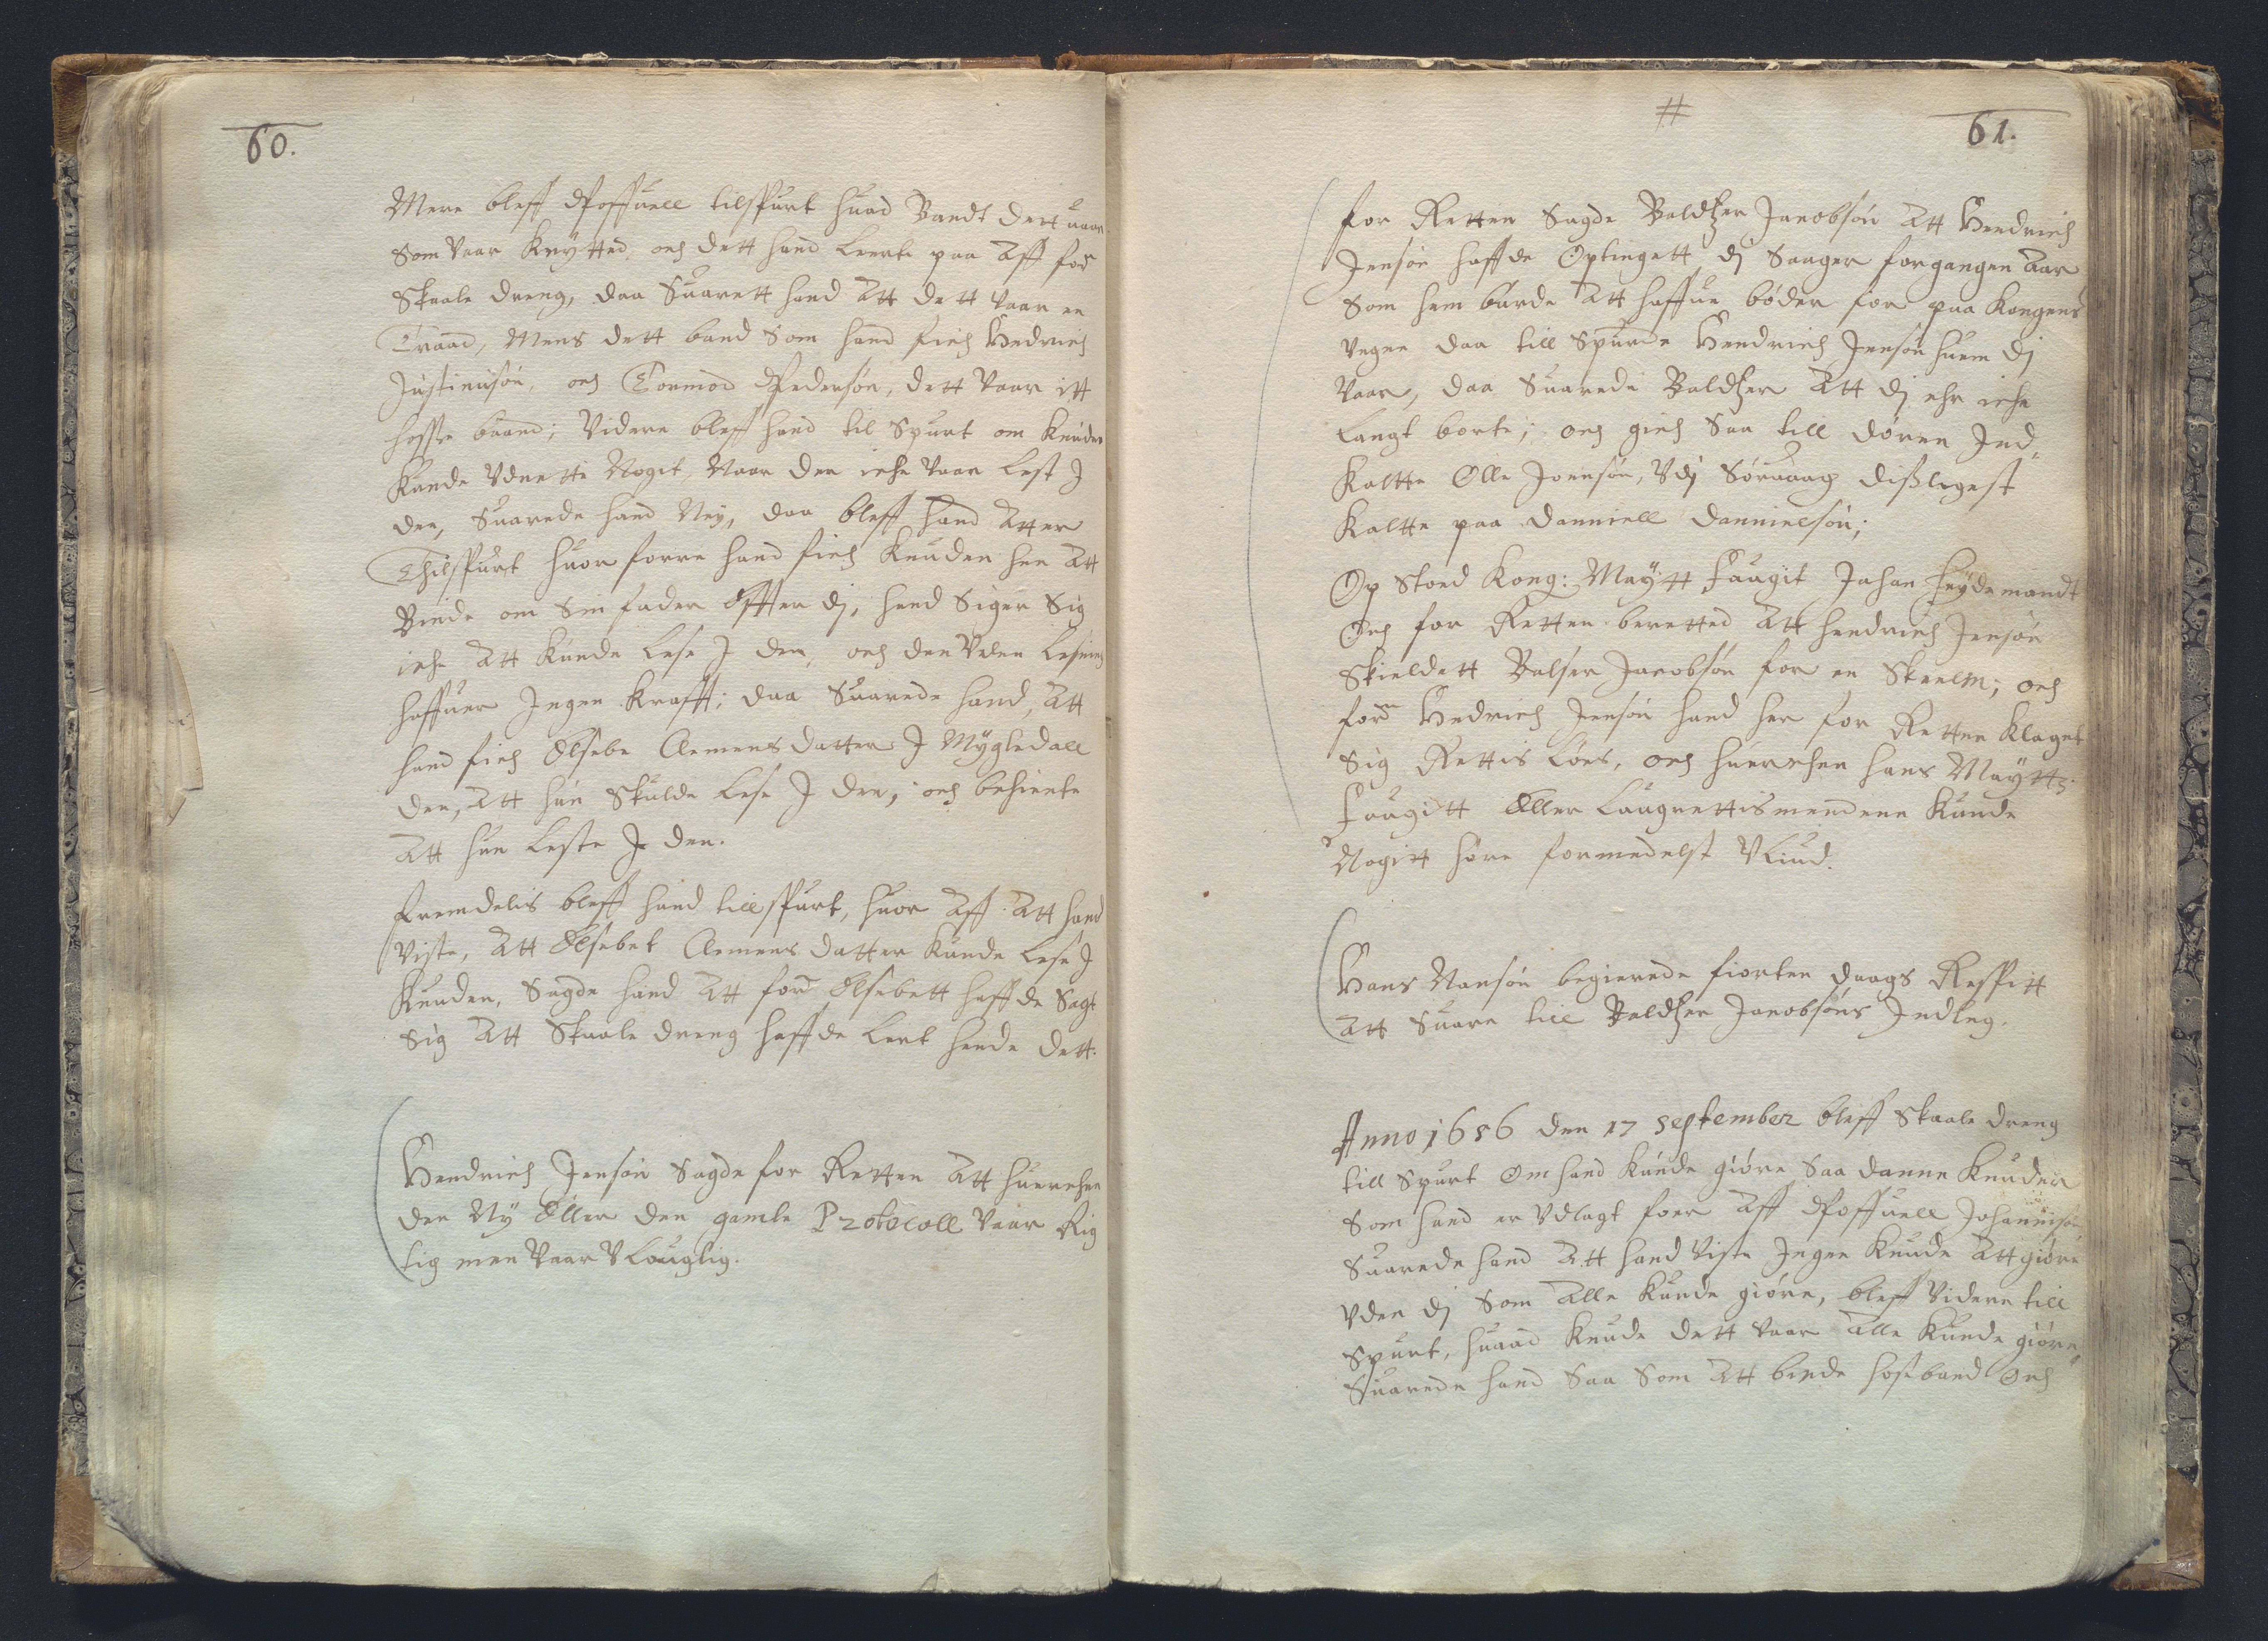 60.
Mere bleff Poffuell tilspurt huad Bandt dett uaar
Som Vaar Knytted, och dett hand Leerte paa Aff for
Skaale dreng, daa Suarett hand Att dett Vaar en
Traad, Mens dett band Som hand fich Hedrich
Justinusøn, och Tormod Pedersøn, dett Vaar itt
hosse baand; Videre bleff hand til Spurt om Knuden
Kunde Vdrette Nogit, Naar der iche Vaar Lest I
den, Suarede hand Ney, daa bleff hand Atter
Thilspurt huor forre hand fich Knuden hen Att
Binde om Sin fader Effter dj, hand Siger Sig
iche Att Kunde Lese I den, och den Vden Lesning
haffuer Ingen Krafft; daa Suarede hand, Att
hand fich Elsebe Clemens datter I Mygledall
den, Att hun Skulde Lese I den, och bekiente
Att hun Leste I den.
Fremdelis bleff hand till spurt, huor Aff Att hand
Viste, Att Elsebet Clemens datter Kunde Lese I
Knuden, Sagde hand Att for Elsebett haffde Sagt
Sig Att Skaale dreng haffde Lert hende dett.
Hendrich Jensøn Sagde for Retten Att huerchen
den Ny Eller den gamle Protocoll Vaar Rig
tig men Vaar VLouglig.
#
61.
for Retten Sagde Baldtzer Jacobsøn Att Hendrich
Jensøn haffde Optingett dj Saager forgangen Aar
Som hem burde Att haffue bøder for paa Kongens
Vegne daa till Spurde Hendrich Jensøn huem dj
Vaar, daa Suarede Baldtzer Att dj ehr iche
Langt borte; och gich Saa till døren Ind„
Kaltte Olle Joensøn, Vdj Sørvaag dißligest
Kaltte paa Danniell Dannielsøn;
Op Stoed Kong: Maytt Faugit Johan Heydemandt
Och for Retten beretted Att Hendrich Jensøn
Skieldett Balser Jacobsøn for en Skaelm; och
for Hedrich Jensøn hand her for Retten Klaget
Sig Rettis Løes, och huerchen hans Maytts
Faugitt Eller Laugrettismendene Kunde
Nogitt høre formedelst VLiud.
Hans Nansøn begierede fiorten daags Respitt
Att Suare till Baldtzer Jacobsøns Indleg.
Anno 1656 den 17 September bleff Skaale dreng
till Spurt Om hand Kunde giøre Saa danne Knuder
Som hand er Vdlagt foer Aff Poffuell Johannisøn
Suarede hand Att hand Viste Ingen Knude Att giøre
Vden dj Som Alle Kunde giøre, bleff Videre till
Spurt, huaad Knude dett Vaar Alle Kunde giøre,
Suarede hand Saa Som Att binde hosband Och